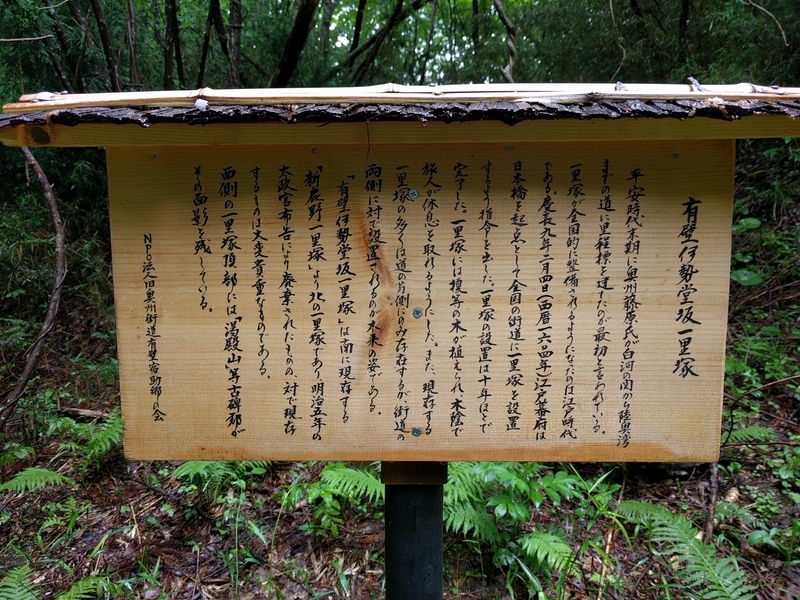 有壁伊勢堂坂一里塚
平安時代末期に奥州藤原氏が白河の関から陸奥湾
までの道に里程標を建てたのが最初と云われている。
一里塚が全国的に整備されるようになったのは江戸時代
である。慶長九年二月四日（西暦一六〇四年）江戸幕府は
日本橋を起点として全国の街道に一里塚を設置
するよう指令を出した。一里塚の設置は十年ほどで
完了した。一里塚には榎等の木が植えられ、木陰で
旅人が休息を取れるようにした。また、現存する
一里塚の多くは道の片側にのみ存在するが、街道の
両側に対で設置されるのが本来の姿である。
「有壁伊勢堂坂一里塚」は南に現存する
「新鹿野一里塚」より北の一里塚であり明治五年の
太政官布告により廃棄されたものの、対で現存
するものは大変貴重なものである。
西側の一里塚頂部には「湯殿山」等古碑群が
その面影を残している。
NPO法人旧奥州街道有壁宿助郷の会